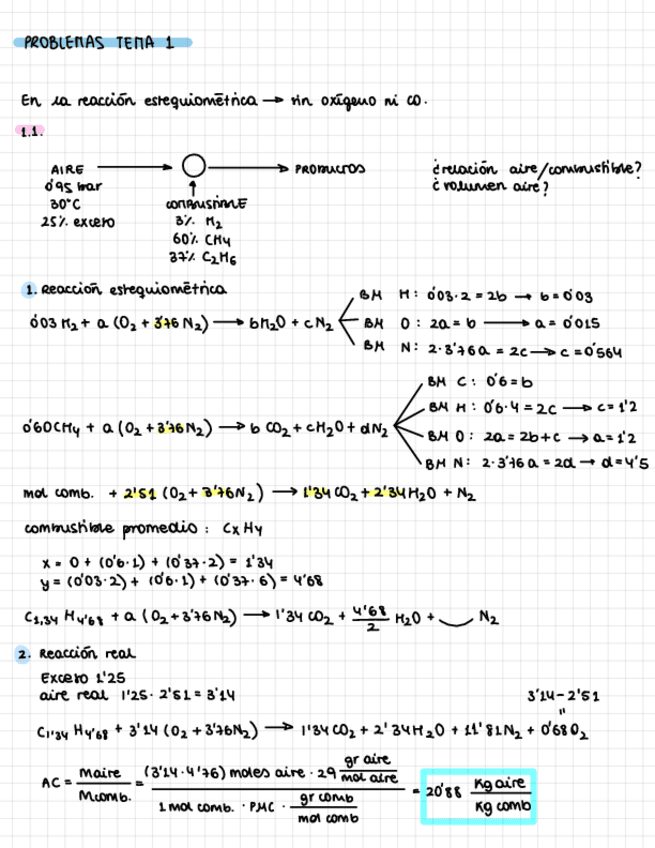 PROBLEMAS TEMA 1
En la reacción estequiométrica → sin oxígeno ni CO.
1.1.
AIRE → PRODUCTOS
0'95 bar
30°C
25% exceso
COMBUSTIBLE
3% H2
60% CH4
37% C2H6
¿relación aire/combustible?
¿volumen aire?
1. Reacción estequiométrica
0'03 H2 + a (O2 + 3'76 N2) → bH2O + cN2
BM H: 0'03·2 = 2b → b = 0'03
BM O: 2a = b → a = 0'015
BM N: 2·3'76a = 2c → c = 0'564
0'60CH4 + a (O2 + 3'76N2) → b CO2 + cH2O + dN2
BM C: 0'6 = b
BM H: 0'6·4 = 2c → c = 1'2
BM O: 2a = 2b + c → a = 1'2
BM N: 2·3'76a = 2d → d = 4'5
mol comb. + 2'51 (O2 + 3'76N2) → 1'34 CO2 + 2'34H2O + N2
combustible promedio: CxHy
x = 0 + (0'6·1) + (0'37·2) = 1'34
y = (0'03·2) + (0'6·1) + (0'37·6) = 4'68
C1,34 H4'68 + a (O2 + 3'76N2) → 1'34 CO2 + 4'68/2 H2O + __ N2
2. Reacción real
Exceso 1'25
aire real 1'25· 2'51 = 3'14
3'14 - 2'51
"
C1'34 H4'68 + 3'14 (O2 + 3'76N2) → 1'34 CO2 + 2'34H2O + 11'81N2 + 0'68O2
AC = maire / mcomb. = (3'14·4'76) moles aire · 29 gr aire/mol aire / 1 mol comb. · PMC · gr comb/mol comb = 20'88 Kg aire/Kg comb